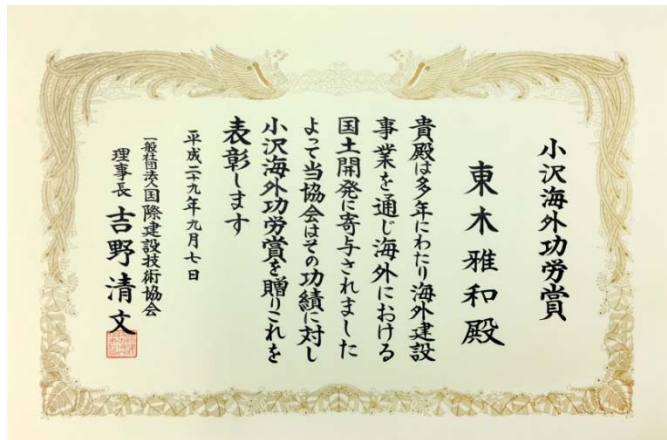 小沢海外功労賞
東木雅和殿
貴殿は多年にわたり海外建設
事業を通じ海外における
国土開発に寄与されました
よって当協会はその功績に対し
小沢海外功労賞を贈りこれを
表彰します
平成二十九年九月七日
一般社団法人国際建設技術協会
理事長 吉野清文